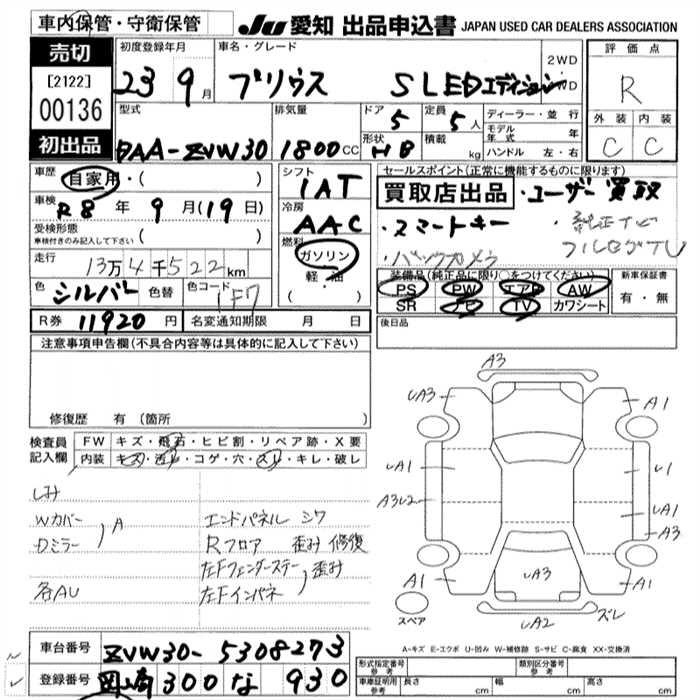 車内保管・守衛保管
JU 愛知 出品申込書 JAPAN USED CAR DEALERS ASSOCIATION
売切
[2122]
00136
初出品
初度登録年月
車名・グレード
23 9月
プリウス S LEDエディション
2WD
評価点
R
外装 内装
C C
型式
排気量
ドア
定員
DAA-ZVW30
1800cc
5
5人
形状
HB
積載
kg
ディーラー・並行
モデル年式 年
ハンドル 左・右
車歴
自家用・( )
シフト
1AT
車検
R8年 9月(19日)
冷房
AAC
受検形態
車検付きのみ記入して下さい ( )
燃料
ガソリン
軽・油
( )
走行
13万4千522km
色
シルバー
色替
色コード
1F7
R券 11920円
名変通知期限 月 日
セールスポイント(正常に機能するものに限ります)
買取店出品・ユーザー買取
・スマートキー
・純正ナビ
フルセグTV
・バックカメラ
装備品(純正品に限り○をつけてください)
PS PW エアB AW
SR ナビ TV カワシート
新車保証書
有・無
後日品
注意事項申告欄(不具合内容等は具体的に記入して下さい)
修復歴 有(箇所
検査員記入欄
FW キズ・飛石・ヒビ割・リペア跡・X要
内装 キズ・汚レ・コゲ・穴・スレ・キレ・破レ
シミ
Wカバー
Dミラー
A
各AU
エンドパネル シワ
Rフロア 歪み 修復
左Fフェンダーステー
左Fインパネ
歪み
A3
UA3
A1
UA1
U1
A3U2
UA1
A3
A1
UA3
A1
UA2
ズレ
スペア
A-キズ E-エクボ U-凹み W-補修跡 S-サビ C-腐食 XX-交換済
車台番号 ZVW30-5308273
登録番号 岡崎 300 な 930
形式指定番号 参考
類別区分番号 参考
車庫証明用 参考
長さ cm
幅 cm
高さ cm